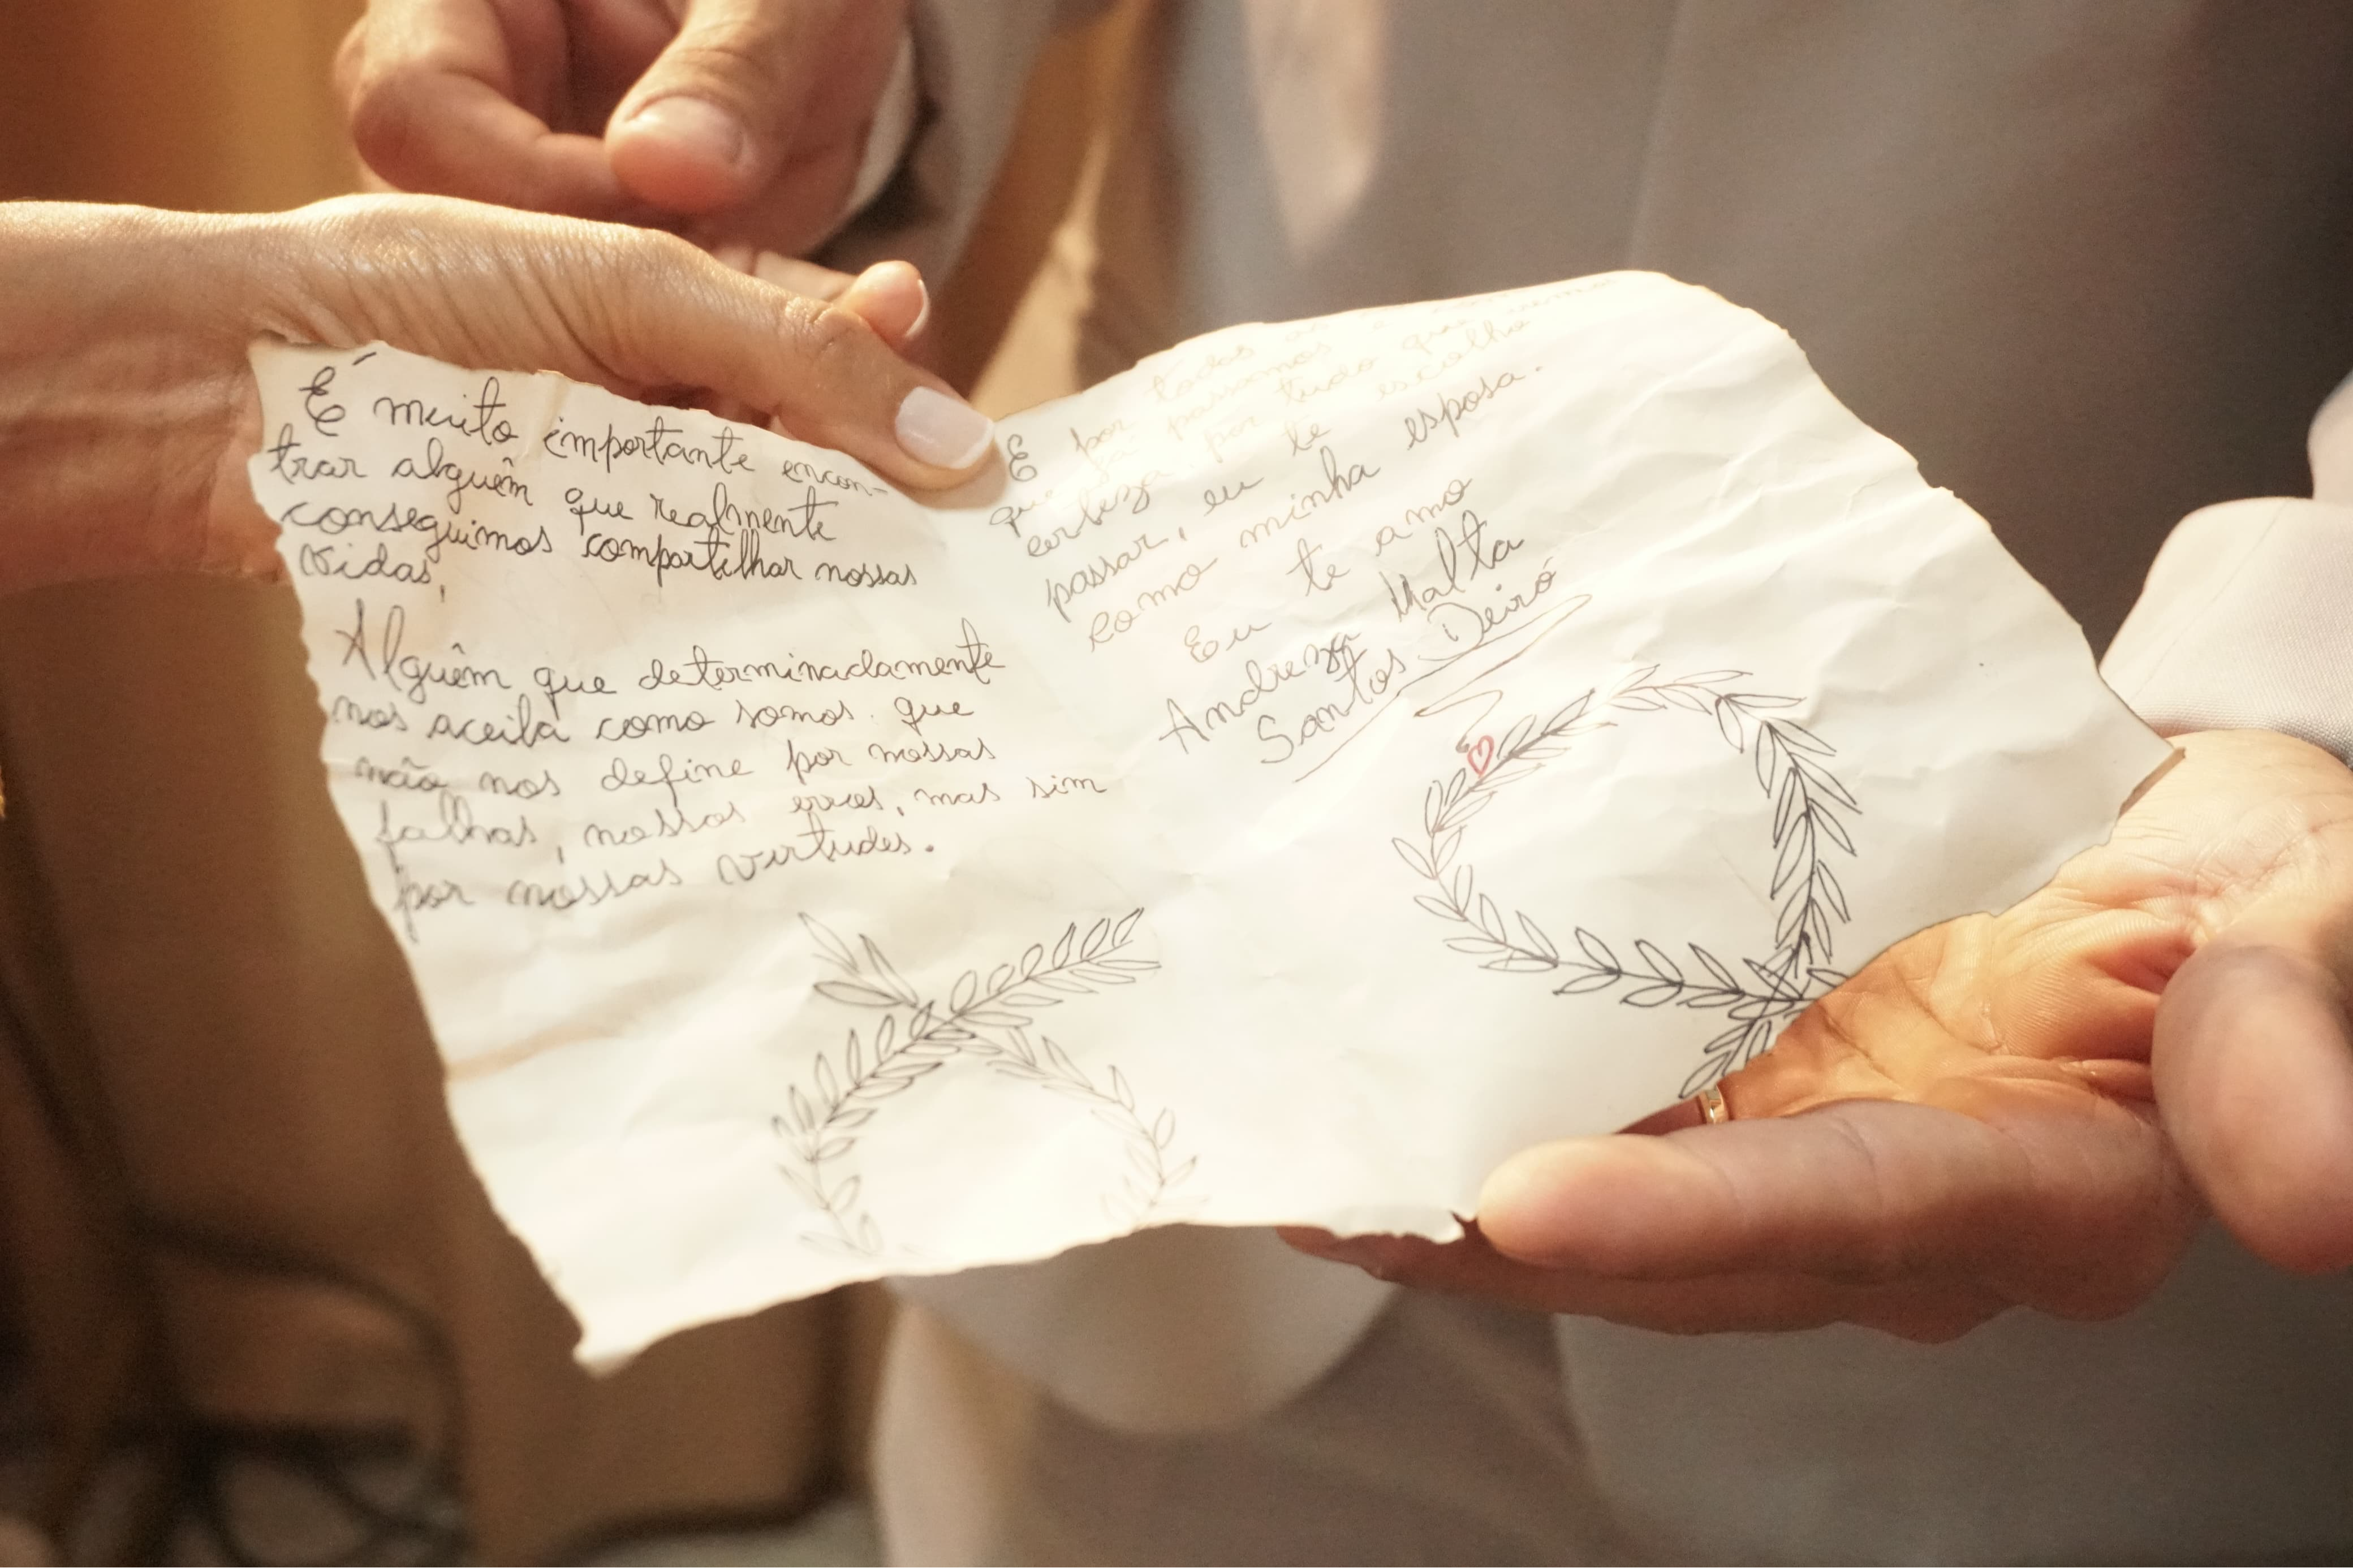 É muito importante encon-
trar alguêm que realmente
conseguimos compartilhar nossas
vidas,
Alguêm que determinadamente
nos aceita como somos. que
não nos define por nossas
falhas, nossos erros, mas sim
por nossas virtudes.
E por todas as
que já passamos e
certeza por tudo que iremos
passar, eu te escolho
como minha esposa.
Eu te amo
Andreza Malta
Santos Deiró